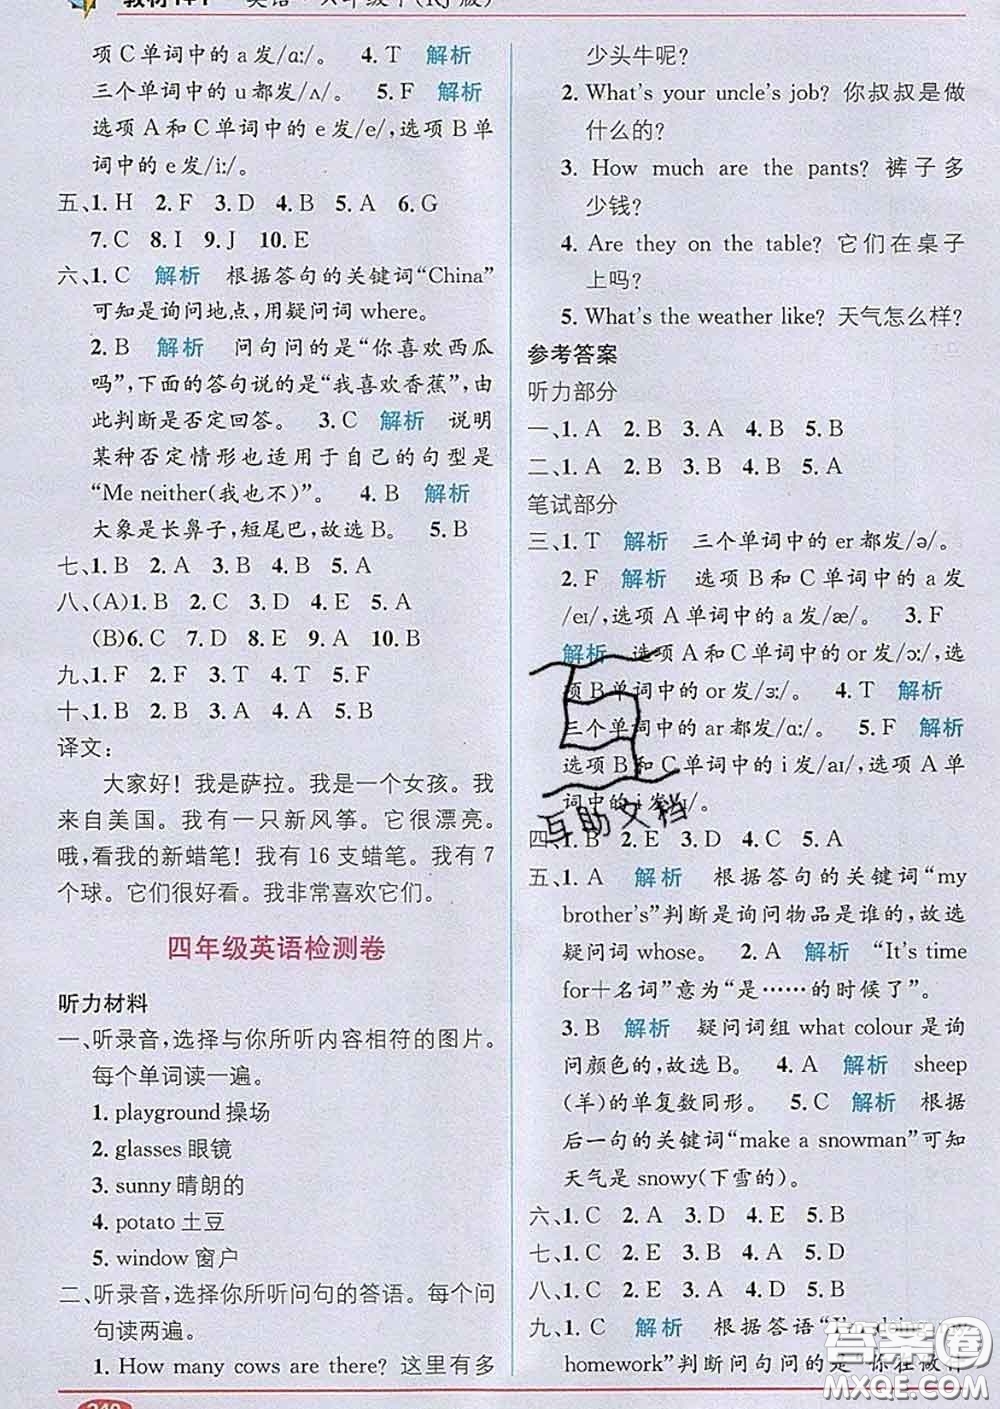 教材1+1 英语·六年级下(RJ版)
项C单词中的a发/ɑː/。 4. T 解析
三个单词中的u都发/ʌ/。 5. F 解析
选项A和C单词中的e发/e/,选项B单
词中的e发/iː/。
五、1. H 2. F 3. D 4. B 5. A 6. G
7. C 8. I 9. J 10. E
六、1. C 解析 根据答句的关键词“China”
可知是询问地点,用疑问词 where。
2. B 解析 问句问的是“你喜欢西瓜
吗”,下面的答句说的是“我喜欢香蕉”,由
此判断是否定回答。 3. C 解析 说明
某种否定情形也适用于自己的句型是
“Me neither(我也不)”。 4. B 解析
大象是长鼻子,短尾巴,故选B。 5. B
七、1. B 2. A 3. B 4. B 5. A
八、(A)1. B 2. C 3. B 4. C 5. A
(B)6. C 7. D 8. E 9. A 10. B
九、1. F 2. F 3. T 4. T 5. F
十、1. B 2. B 3. A 4. A 5. B
译文:
大家好!我是萨拉。我是一个女孩。我
来自美国。我有一只新风筝。它很漂亮。
哦,看我的新蜡笔!我有 16 支蜡笔。我有 7
个球。它们很好看。我非常喜欢它们。
四年级英语检测卷
听力材料
一、听录音,选择与你所听内容相符的图片。
每个单词读一遍。
1. playground 操场
2. glasses 眼镜
3. sunny 晴朗的
4. potato 土豆
5. window 窗户
二、听录音,选择你所听问句的答语。每个问
句读两遍。
1. How many cows are there? 这里有多
240
少头牛呢?
2. What's your uncle's job? 你叔叔是做
什么的?
3. How much are the pants? 裤子多
少钱?
4. Are they on the table? 它们在桌子
上吗?
5. What's the weather like? 天气怎么样?
参考答案
听力部分
一、1. A 2. B 3. A 4. B 5. B
二、1. A 2. B 3. B 4. A 5. B
笔试部分
三、1. T 解析 三个单词中的 er 都发/ə/。
2. F 解析 选项B和C单词中的a发
/eɪ/,选项A单词中的a发/æ/。 3. F
解析 选项A和C单词中的or发/ɔː/,选
项B单词中的or发/ɜː/。 4. T 解析
三个单词中的ar都发/ɑː/。 5. F 解析
选项B和C单词中的i发/aɪ/,选项A单
词中的i发/ɪ/。
互助文档
四、1. B 2. E 3. D 4. C 5. A
五、1. A 解析 根据答句的关键词“my
brother's”判断是询问物品是谁的,故选
疑问词 whose。 2. A 解析 “It's time
for+名词”意为“是……的时候了”。
3. B 解析 疑问词组 what colour 是询
问颜色的,故选B。 4. A 解析 sheep
(羊)的单复数同形。 5. C 解析 根据
后一句的关键词“make a snowman”可知
天气是 snowy(下雪的)。
六、1. C 2. A 3. D 4. E 5. B
七、1. C 2. E 3. B 4. A 5. D
八、1. C 2. E 3. A 4. D 5. B
九、1. C 解析 根据答语“I'm doing my
homework”判断问句问的是“你在做什
答案圈
MXQE.COM